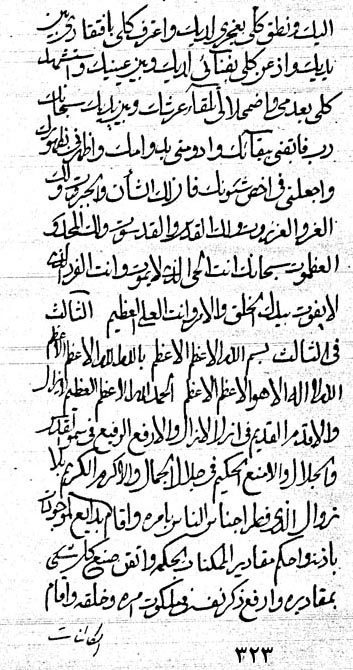 اليك و نطق كلي بعجزي لديك و اعترف كلي بافتقاري بين
يديك و اذعن كلي بفنائي لديك و بين عينيك و استشهد
كلي بعدمي و اضمحلالي تلقاء عرشك و بين يديك سبحانك
رب فابقني ببقائك و ادومني بدوامك و اظهرني بظهورك
و اجعلني في اخص شئونك فان لك الشأن و الجبروت و لك
العز و العززوت و لك القدر و القدسوت و لك المجد و
العظموت سبحانك انت الحي الذي لا يموت و انت الفرد الذي
لا يفوت بيدك الخلق و الامر و انت العلي العظيم الثالث
في الثالث بسم الله الاعظم الاعظم بالله الله الاعظم الاعظم
الله لا اله الا هو الاعظم الاعظم الحمد لله الاعظم العظيم
و الاقدم القديم في ازل الازال و الارفع الرفيع في سمو
و الجلال و الامنع الحكيم في جلال الجمال و الاكرم الكريم بلا
زوال الذي فطر اجناس الناس بامره و اقام بدايع الموجودات
باذنه و احكم مقادير الممكنات بحكمه و اتقن صنع كل شيء
بمقاديره و ارفع ذكر نفسه في ملكوت امره و خلقه و اقام
الكائنات
٣٢٣